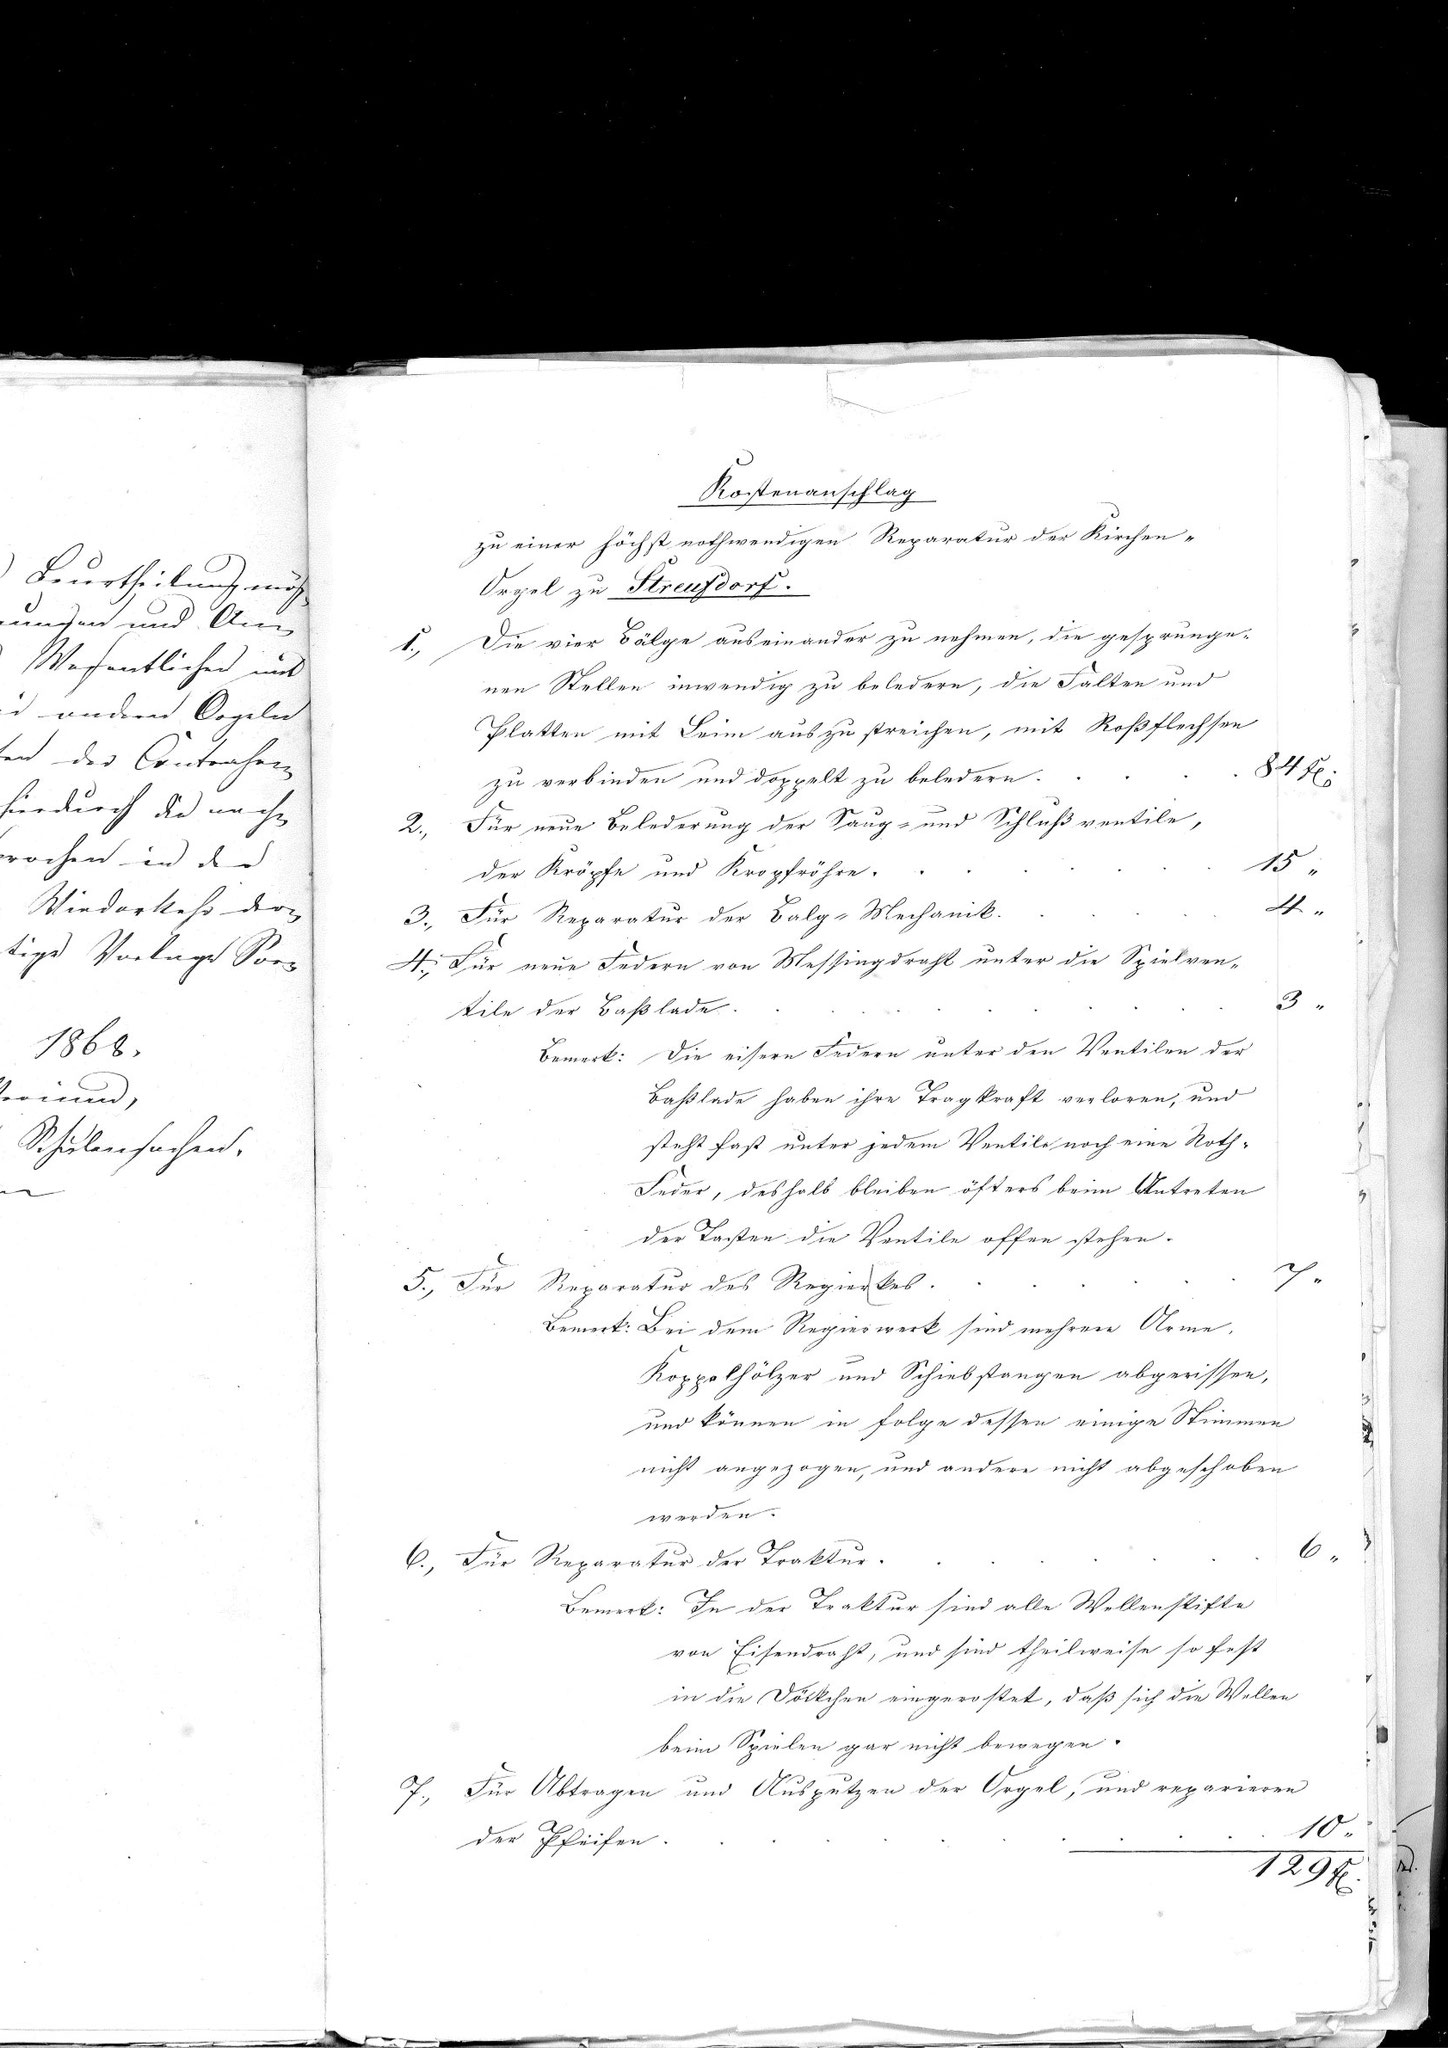 Beurtheilung mög-
rungen und An-
Wesentlichen mit
andern Orgeln
ten des Contrahen-
hierdurch die nach-
prochen in de
Wiederkehr der-
tige Vorlage Sor-
1868.
Schulensachen.
Kostenanschlag
zu einer höchst nothwendigen Reparatur der Kirchen-
Orgel zu Streufdorf.
1., Die vier Bälge auseinander zu nehmen, die gesprunge-
nen Stellen inwendig zu beledern, die Falten und
Platten mit Leim auszustreichen, mit Roßflechsen
zu verbinden und doppelt zu beledern. . . . . 84 fl.
2., Für neue Belederung der Saug- und Schlußventile,
der Kröpfe und Kropfröhre. . . . . . 15 "
3., Für Reparatur der Balg-Mechanik. . . . . 4 "
4., Für neue Federn von Messingdraht unter die Spielven-
tile der Baßlade. . . . . . . 3 "
Bemerk: Die eisern Federn unter den Ventilen der
Baßlade haben ihre Tragkraft verloren, und
steht fast unter jedem Ventile noch eine Noth-
Feder, deshalb bleiben öfters beim Antreten
der Tasten die Ventile offen stehen.
5., Für Reparatur des Regierkes. . . . . . 7 "
Bemerk: Bei dem Regierwerk sind mehrere Arme,
Koppelhölzer und Schiebstangen abgerissen,
und können in folge dessen einige Stimmen
nicht angezogen, und andere nicht abgeschoben
werden.
6., Für Reparatur der Traktur. . . . . . 6 "
Bemerk: In der Traktur sind alle Wellenstifte
von Eisendraht, und sind theilweise so fest
in die Döckchen eingerostet, daß sich die Wellen
beim Spielen gar nicht bewegen.
7., Für Abtragen und Ausputzen der Orgel, und reparieren
der Pfeifen. . . . . . . . 10 "
129 fl.